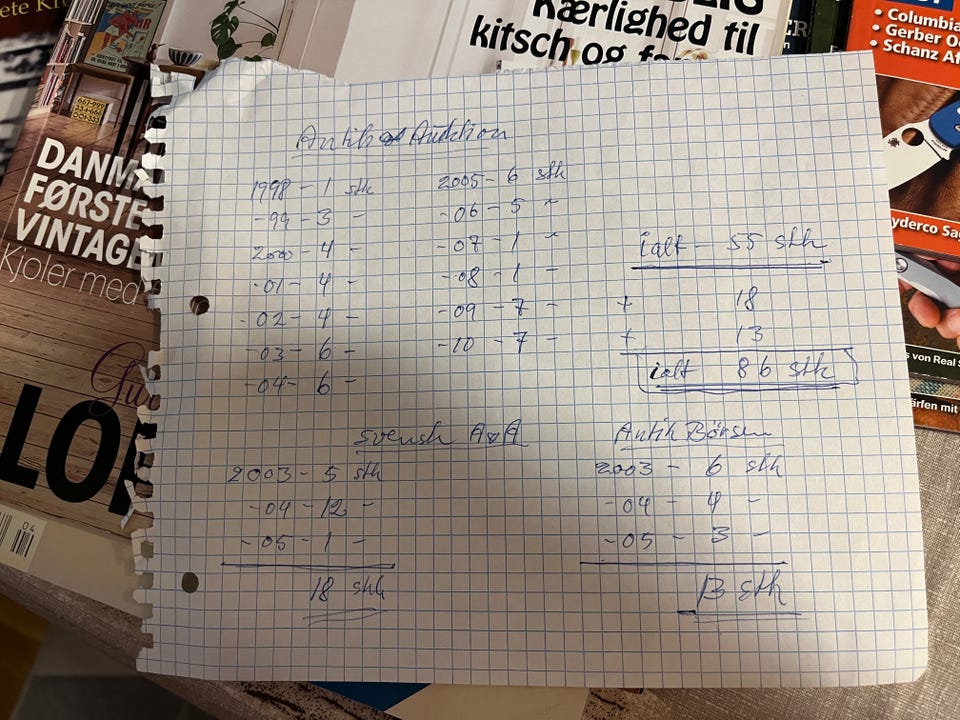 Kærlighed til
kitsch og
DANM
FØRSTE
VINTAGE
Kjoler med
LOP
04
• Columbia
• Gerber O
• Schanz Af
yderco Sag
s von Real S
ärfen mit
Antik & Auktion
1998 - 1 stk
- 99 - 3 -
2000 - 4 -
- 01 - 4 -
- 02 - 4 -
- 03 - 6 -
- 04 - 6 -
2005 - 6 stk
- 06 - 5 ~
- 07 - 1 ~
- 08 - 1 -
- 09 - 7 -
- 10 - 7 -
ialt - 55 stk
+ 18
+ 13
ialt 86 stk
Svensk A&A
2003 - 5 stk
- 04 - 12 -
- 05 - 1 -
18 stk
Antik Börsen
2003 - 6 stk
- 04 - 4 -
- 05 - 3 -
13 stk